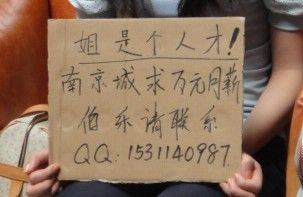 姐是个人才!
南京城求万元月薪
伯乐请联系
QQ:1531140987